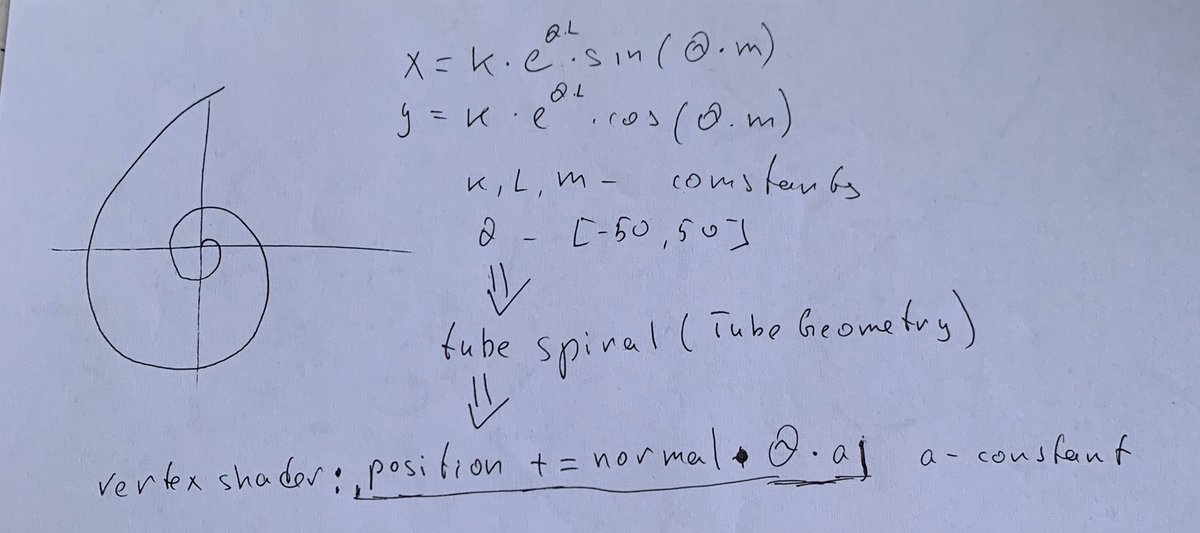 x = k · e^θ·L · sin(θ·m)
y = k · e^θ·L · cos(θ·m)
k, L, m – constants
θ – [-50, 50]
⇓
tube spiral (TubeGeometry)
⇓
vertex shader: position += normal · θ · a; a - constant